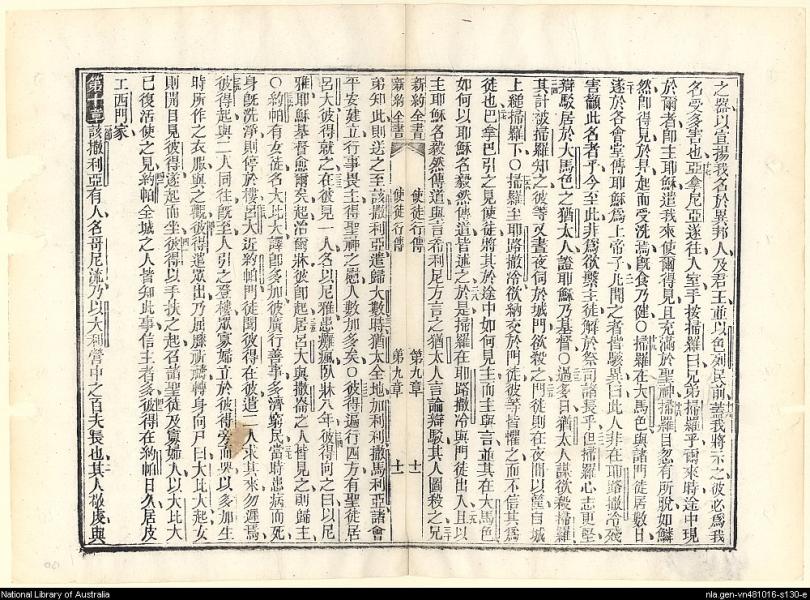 之器以宣揚我名於異邦人及君王並以色列民前蓋我將示之彼必爲我
名受多害也亞拿尼亞遂往入室手按掃羅曰兄弟掃羅乎爾來時途中現
於爾者卽主耶穌遣我來使爾得見且充滿於聖神掃羅目忽有所脫如鱗
然卽得見於是起而受洗焉旣食乃健〇掃羅在大馬色與諸門徒居數日
遂於各會堂傳耶穌爲上帝子凡聞之者皆駭異曰此人非在耶路撒冷殘
害籲此名者乎今至此非爲欲縶主徒解於祭司諸長乎但掃羅心志更堅
辯駁居於大馬色之猶太人證耶穌乃基督〇過多日猶太人謀欲殺掃羅
其計被掃羅知之彼等又晝夜伺於城門欲殺之門徒則在夜間以筐自城
上縋掃羅下〇掃羅至耶路撒冷欲納交於門徒彼等皆懼之而不信其爲
徒也巴拿巴引之見使徒將其於途中如何見主而主與言並其在大馬色
如何以耶穌名毅然傳道皆述之於是掃羅在耶路撒冷與門徒出入且以
主耶穌名毅然傳道與言希利尼方言之猶太人言論辯駁其人圖殺之兄
新約全書 使徒行傳 第九章 十一
新約全書 使徒行傳 第九章 十一
弟知此則送之至該撒利亞遣歸大數時猶太全地加利利撒馬利亞諸會
平安建立行事畏主得聖神之慰人數加多矣〇彼得遍行四方有聖徒居
呂大彼得就之在彼見一人名以尼雅患癱瘋臥牀八年彼得向之曰以尼
雅耶穌基督愈爾矣起治爾牀彼卽起居呂大與撒崙之人皆見之則歸主
〇約帕有女徒名大比大譯卽多加彼廣行善事多濟窮民當時患病而死
身旣洗淨則停於樓呂大近約帕門徒聞彼得在彼遣二人求其來勿遲焉
彼得起與二人同往旣至人引之登樓眾寡婦立於彼得旁而哭以多加生
時所作之衣服與之觀彼得遣眾出乃屈膝祈禱轉身向尸曰大比大起女
則開目見彼得遂起而坐彼得以手扶之起召諸聖徒及寡婦人以大比大
已復活使之見約帕全城之人皆知此事信主者多彼得在約帕日久居皮
工西門家
第十章該撒利亞有人名哥尼流乃以大利營中之百夫長也其人敬虔與
National Library of Australia
nla.gen-vn481016-s130-e